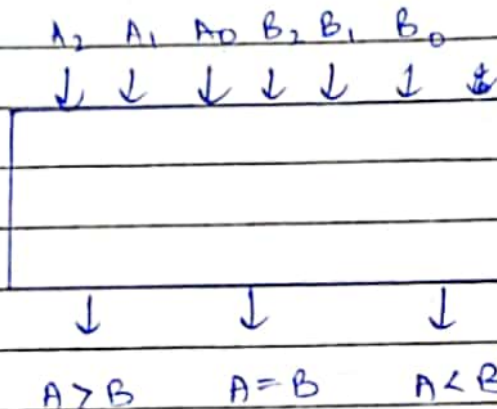 A₂ A₁ A₀ B₂ B₁ B₀
A > B A = B A < B